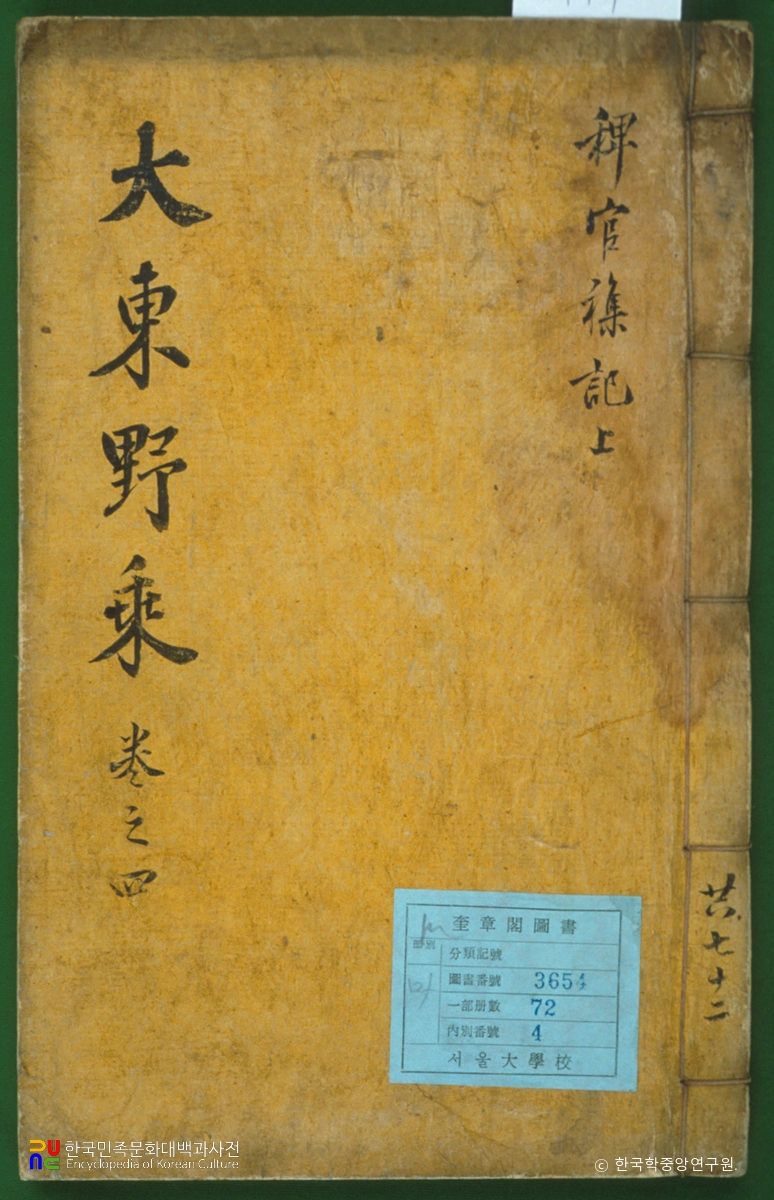 稗官襍記上
大東野乘 卷之四
共七十二
奎章閣圖書
部別
分類記號
圖書番號 3654
一部册數 72
內別番號 4
서울大學校
한국민족문화대백과사전
Encyclopedia of Korean Culture
© 한국학중앙연구원